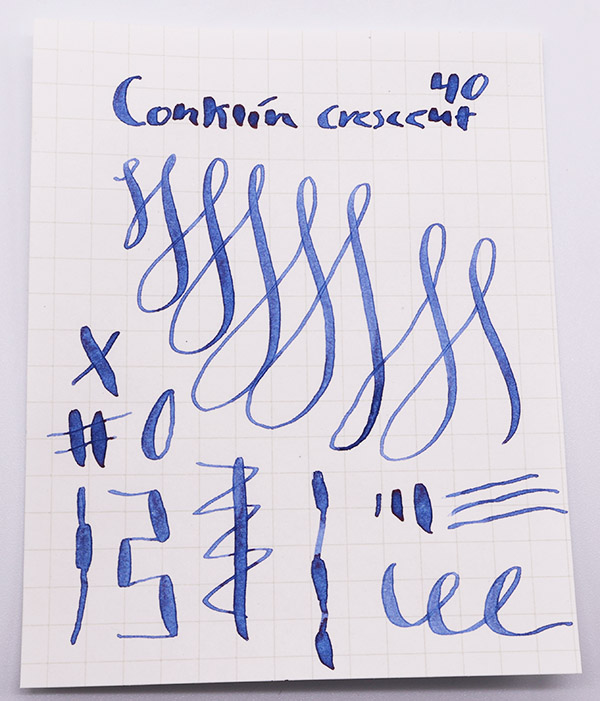 Conklin crescent 40
X
# O